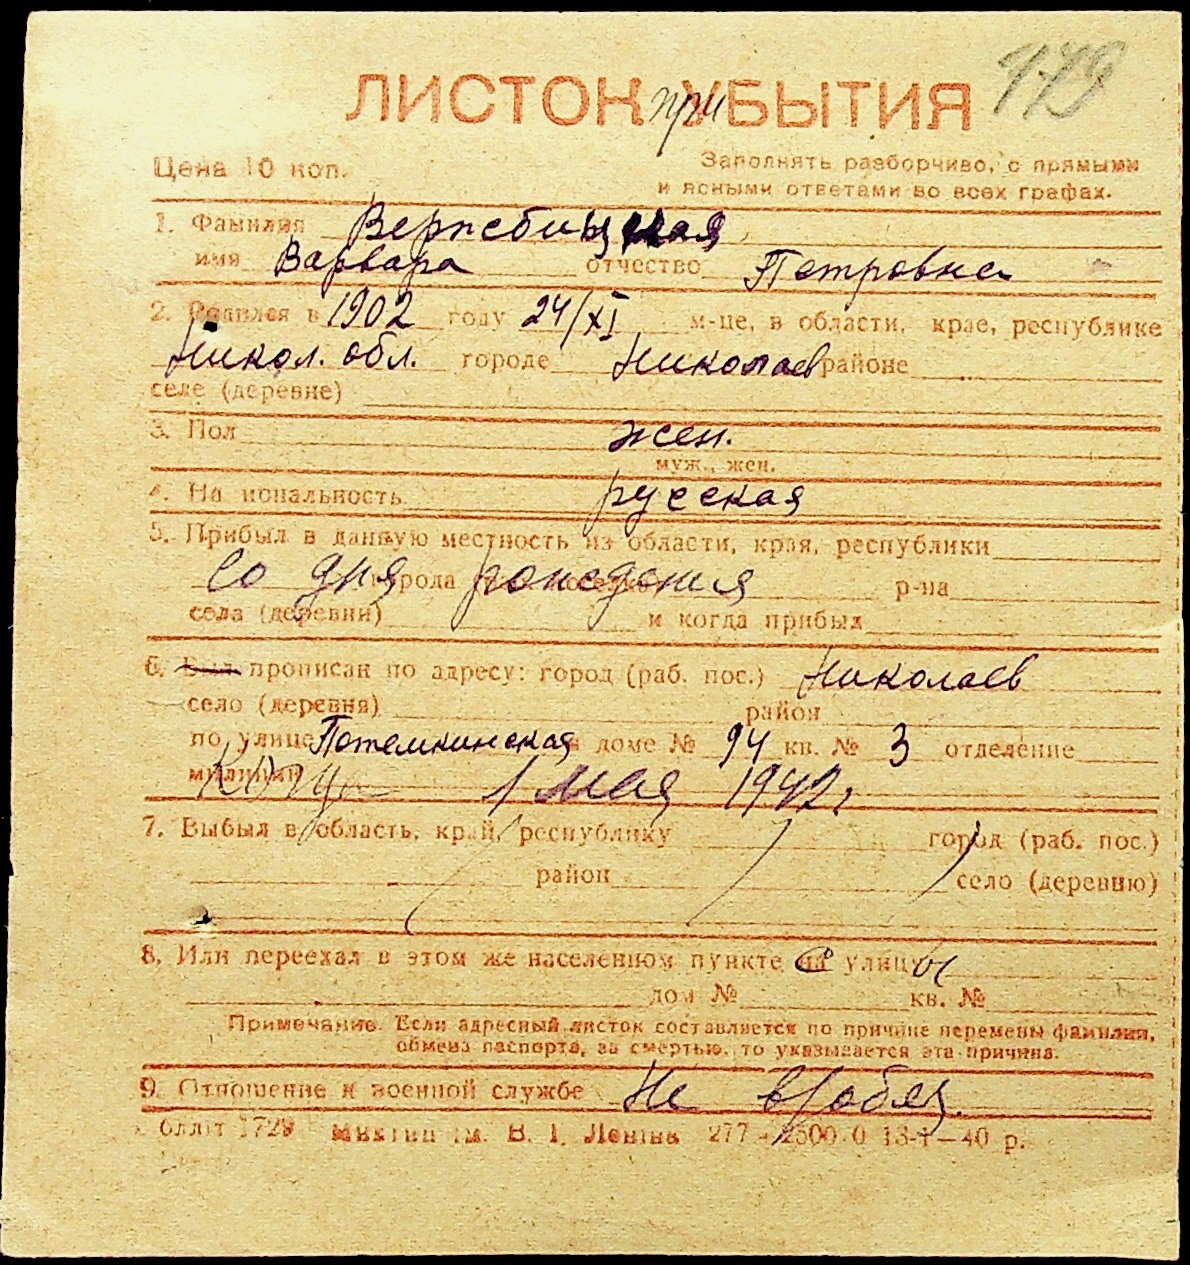 ЛИСТОК при УБЫТИЯ 773
Цена 10 коп.
Заполнять разборчиво, с прямыми
и ясными ответами во всех графах.
1. Фамилия Вержебицкая
имя Варвара отчество Петровна
2. Родился в 1902 году 24/XI м-це, в области, крае, республике
Никол. обл. городе Николаев районе
селе (деревне)
3. Пол жен.
муж., жен.
4. На иональность русская
5. Прибыл в данную местность из области, края, республики
Со дня города рождения р-на
села (деревни) и когда прибыл
6. прописан по адресу: город (раб. пос.) Николаев
село (деревня) район
по улице Потемкинская доме № 94 кв. № 3 отделение
милиции 1 мая 1942 г.
7. Выбыл в область, край, республику город (раб. пос.)
район село (деревню)
8. Или переехал в этом же населенном пункте с улицы
дом № кв. №
Примечание. Если адресный листок составляется по причине перемены фамилии,
обмена паспорта, за смертью, то указывается эта причина.
9. Отношение к военной службе Не в/обяз.
1729 ім. В. І. Леніна 277 - 2500.0 13-І-40 р.